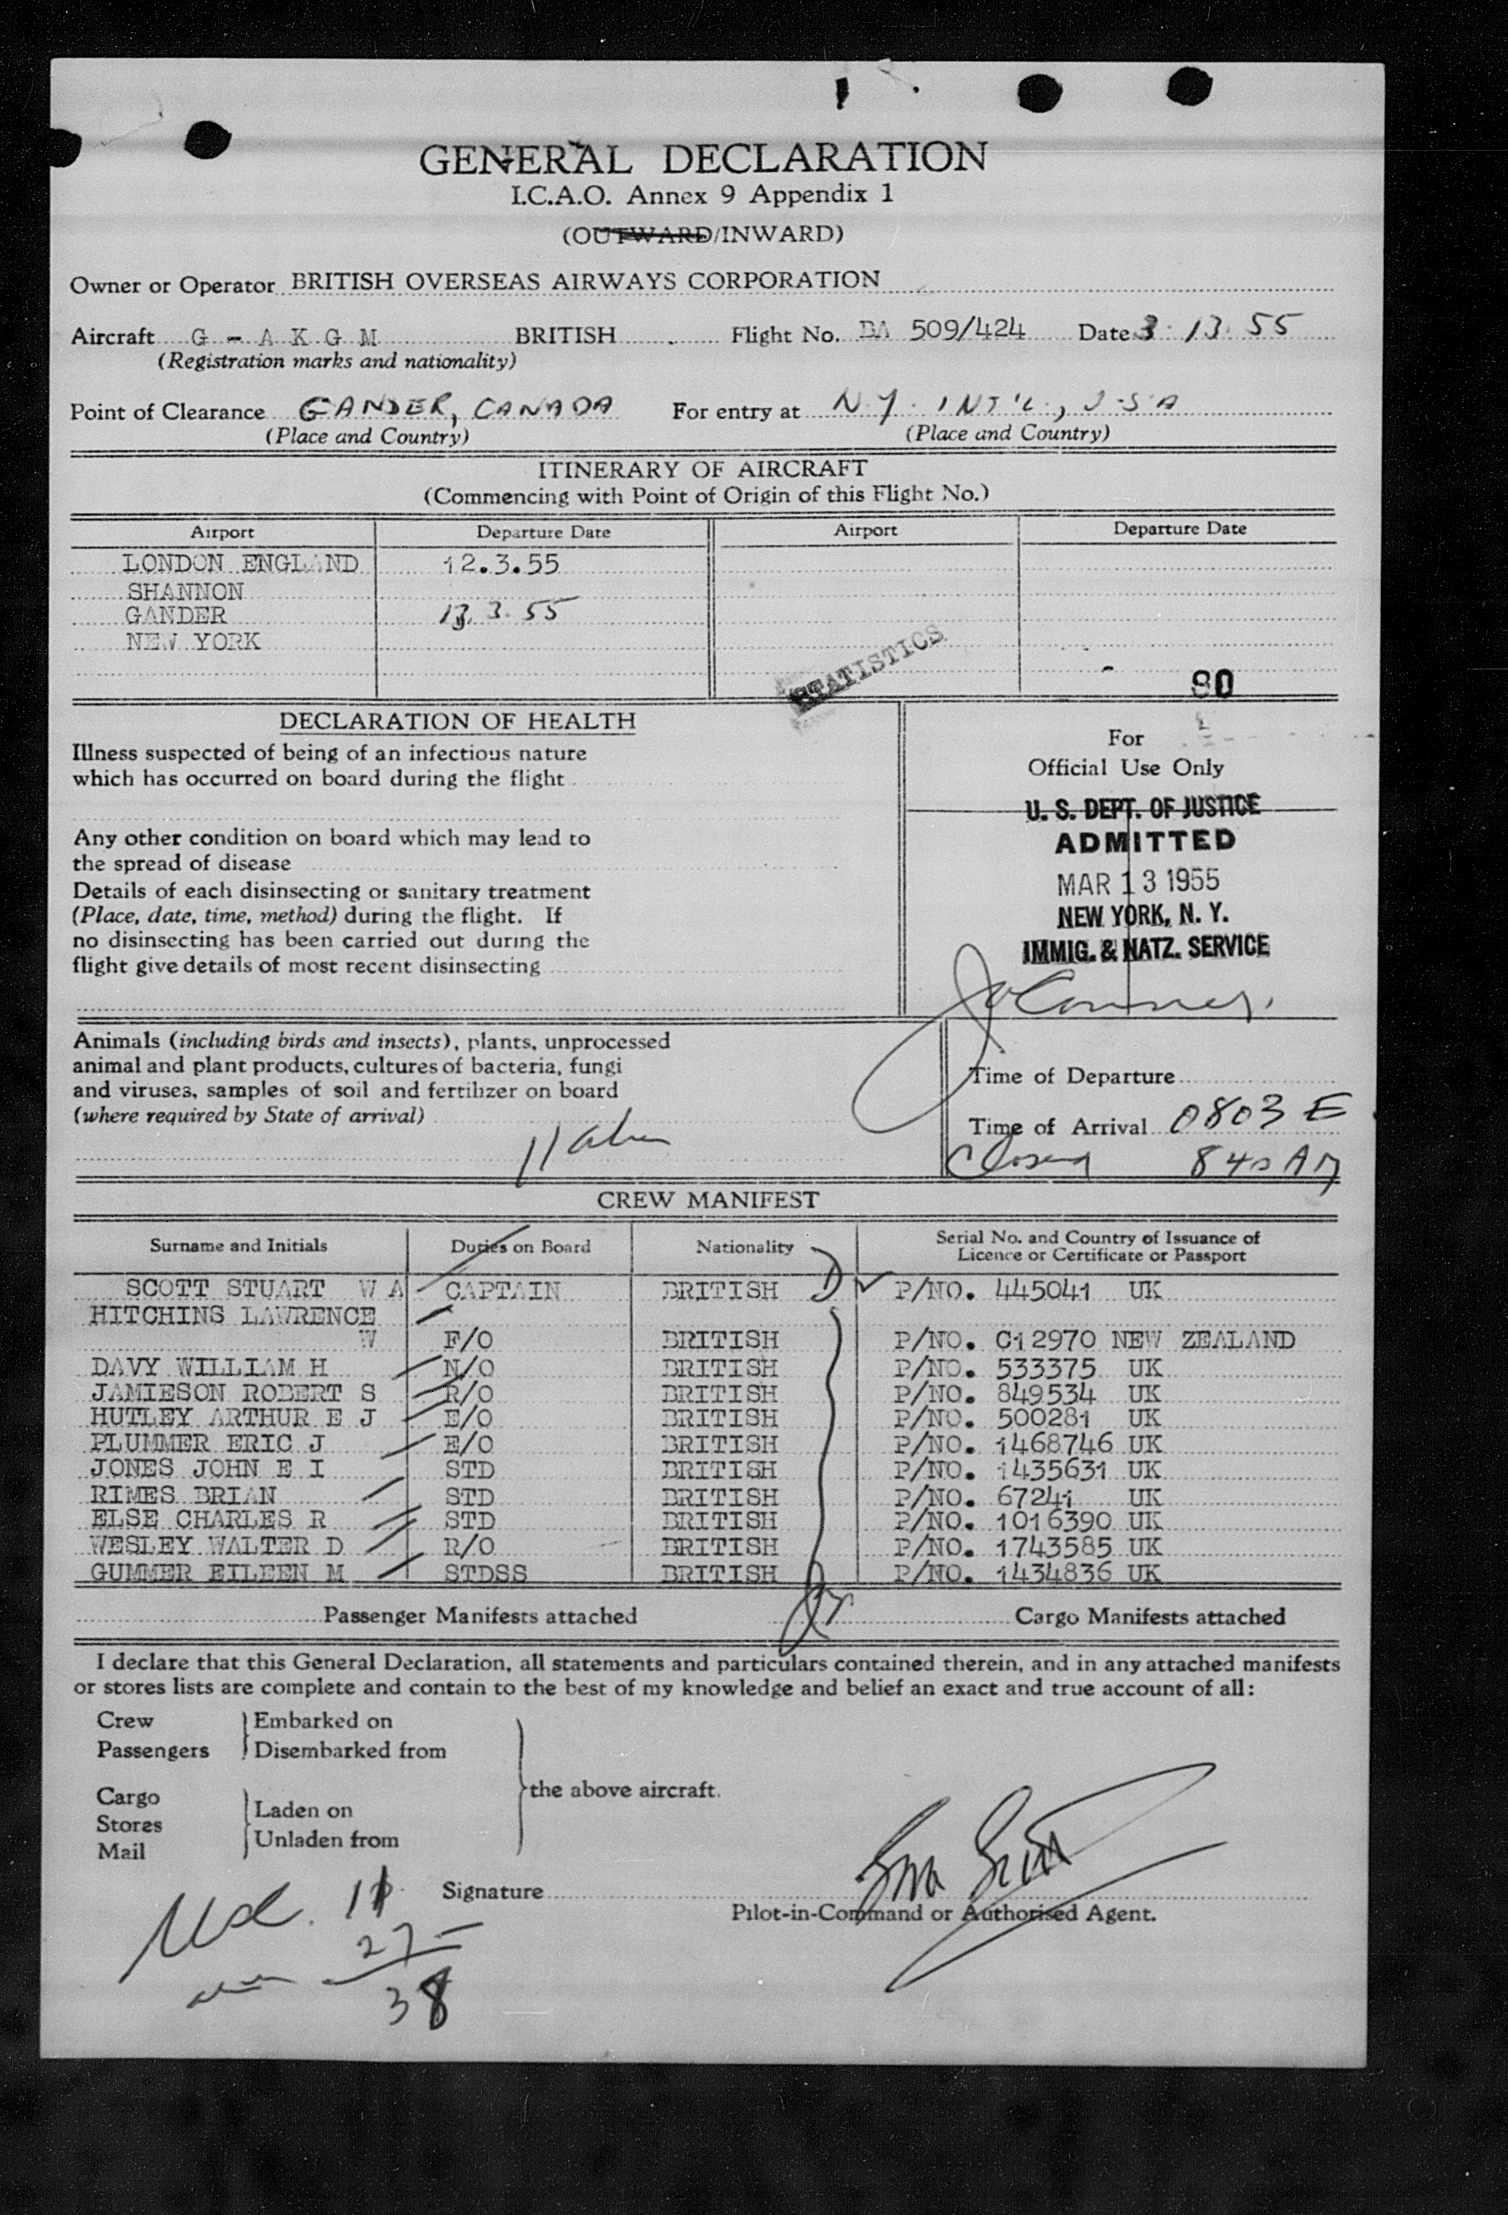 GENERAL DECLARATION
I.C.A.O. Annex 9 Appendix 1
(OUTWARD/INWARD)
Owner or Operator BRITISH OVERSEAS AIRWAYS CORPORATION
Aircraft G - A K G M BRITISH Flight No. BA 509/424 Date 3 · 13 · 55
(Registration marks and nationality)
Point of Clearance GANDER, CANADA For entry at N.Y. INT'L, U.S.A
(Place and Country) (Place and Country)
ITINERARY OF AIRCRAFT
(Commencing with Point of Origin of this Flight No.)
Airport Departure Date Airport Departure Date
LONDON ENGLAND 12.3.55
SHANNON
GANDER 13.3.55
NEW YORK
STATISTICS
80
DECLARATION OF HEALTH
Illness suspected of being of an infectious nature
which has occurred on board during the flight
Any other condition on board which may lead to
the spread of disease
Details of each disinsecting or sanitary treatment
(Place, date, time, method) during the flight. If
no disinsecting has been carried out during the
flight give details of most recent disinsecting
For
Official Use Only
U. S. DEPT. OF JUSTICE
ADMITTED
MAR 13 1955
NEW YORK, N. Y.
IMMIG. & NATZ. SERVICE
Animals (including birds and insects), plants, unprocessed
animal and plant products, cultures of bacteria, fungi
and viruses, samples of soil and fertilizer on board
(where required by State of arrival)
Time of Departure
Time of Arrival 0803 E
Closed 840 AM
CREW MANIFEST
Surname and Initials Duties on Board Nationality Serial No. and Country of Issuance of
Licence or Certificate or Passport
SCOTT STUART W A CAPTAIN BRITISH P/NO. 445041 UK
HITCHINS LAWRENCE
W F/O BRITISH P/NO. C12970 NEW ZEALAND
DAVY WILLIAM H N/O BRITISH P/NO. 533375 UK
JAMIESON ROBERT S R/O BRITISH P/NO. 849534 UK
HUTLEY ARTHUR E J E/O BRITISH P/NO. 500281 UK
PLUMMER ERIC J E/O BRITISH P/NO. 1468746 UK
JONES JOHN E I STD BRITISH P/NO. 1435631 UK
RIMES BRIAN STD BRITISH P/NO. 67241 UK
ELSE CHARLES R STD BRITISH P/NO. 1016390 UK
WESLEY WALTER D R/O BRITISH P/NO. 1743585 UK
GUMMER EILEEN M STDSS BRITISH P/NO. 1434836 UK
Passenger Manifests attached Cargo Manifests attached
I declare that this General Declaration, all statements and particulars contained therein, and in any attached manifests
or stores lists are complete and contain to the best of my knowledge and belief an exact and true account of all:
Crew Embarked on
Passengers Disembarked from
the above aircraft.
Cargo Laden on
Stores
Mail Unladen from
Signature
Pilot-in-Command or Authorised Agent.
11
27
38